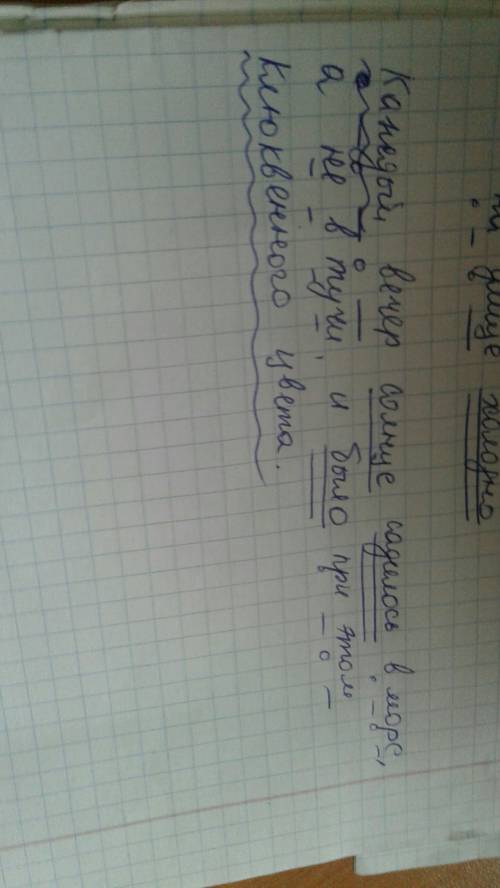 улице холодно
Каждый вечер солнце садилось в море,
а не в тучи, и было при этом
клюквенного цвета.